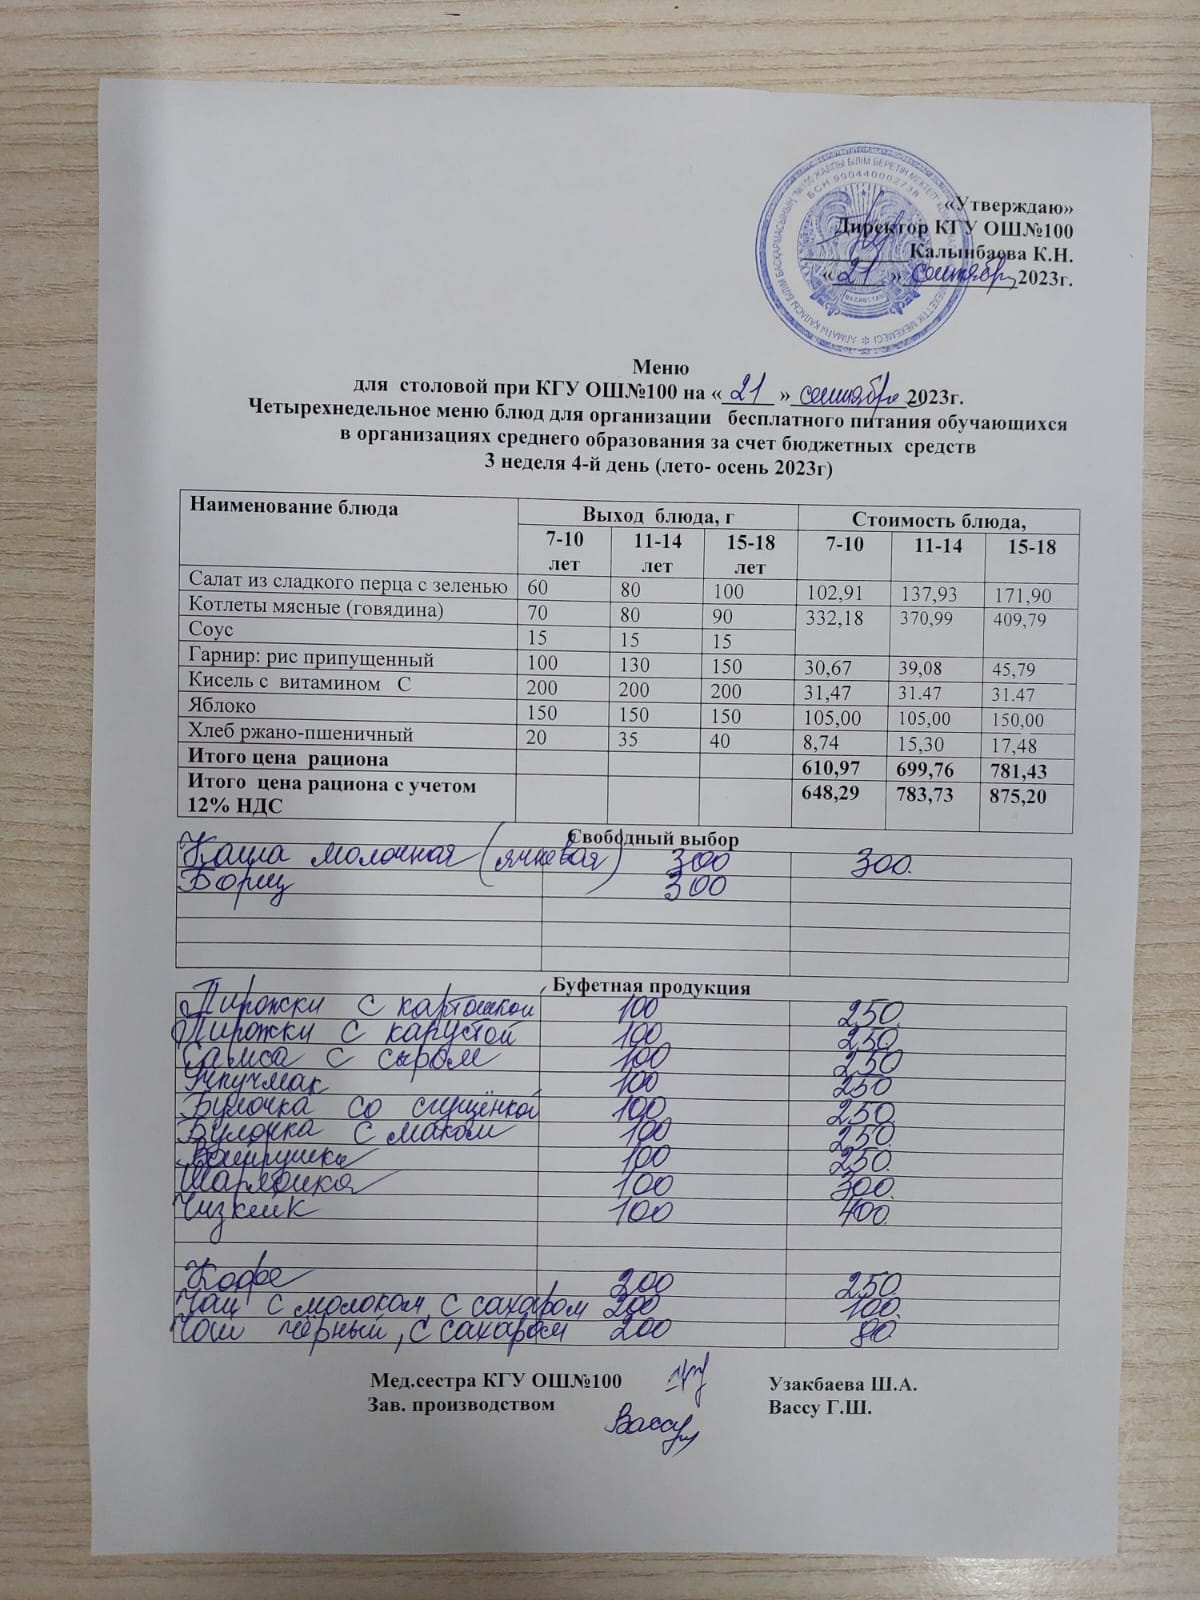 «Утверждаю»
Директор КГУ ОШ№100
Калынбаева К.Н.
«21» сентябрь 2023г.
БСН 990440002738
Меню
для столовой при КГУ ОШ№100 на «21» сентября 2023г.
Четырехнедельное меню блюд для организации бесплатного питания обучающихся
в организациях среднего образования за счет бюджетных средств
3 неделя 4-й день (лето- осень 2023г)
Наименование блюда Выход блюда, г Стоимость блюда,
7-10 лет 11-14 лет 15-18 лет 7-10 11-14 15-18
Салат из сладкого перца с зеленью 60 80 100 102,91 137,93 171,90
Котлеты мясные (говядина) 70 80 90 332,18 370,99 409,79
Соус 15 15 15
Гарнир: рис припущенный 100 130 150 30,67 39,08 45,79
Кисель с витамином С 200 200 200 31,47 31.47 31.47
Яблоко 150 150 150 105,00 105,00 150,00
Хлеб ржано-пшеничный 20 35 40 8,74 15,30 17,48
Итого цена рациона 610,97 699,76 781,43
Итого цена рациона с учетом 648,29 783,73 875,20
12% НДС
Свободный выбор
Каша молочная (ячневая) 300 300.
Борщ 300
Буфетная продукция
Пирожки с картошкой 100 250.
Пирожки с капустой 100 250.
Самса с сыром 100 250
Учпучмак 100 250
Булочка со сгущёнкой 100 250.
Булочка с маком 100 250.
Ватрушка 100 250.
Шарлотка 100 300.
Чизкейк 100 400.
Кофе 200 250.
Чай с молоком, с сахаром 200 100.
Чай чёрный, с сахаром 200 80
Мед.сестра КГУ ОШ№100 Узакбаева Ш.А.
Зав. производством Вассу Вассу Г.Ш.